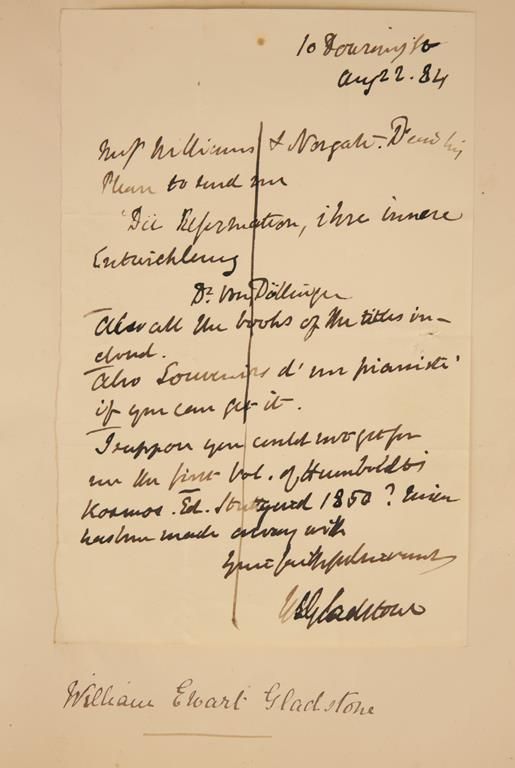 10 Downing St
Aug 22. 84
Messrs Williams & Norgate.
Please to send me
'Die Reformation, ihre innere
Entwicklung
Dr. von Döllinger
Also all the books of the titles in-
closed.
Also Souvenirs d'un pianiste'
if you can get it.
I suppose you could not get for
me the first Vol. of Humboldts
Kosmos. Ed. Stuttgard 1850? Mine
has been made away with
Your faithful servant
WEGladstone
William Ewart Gladstone